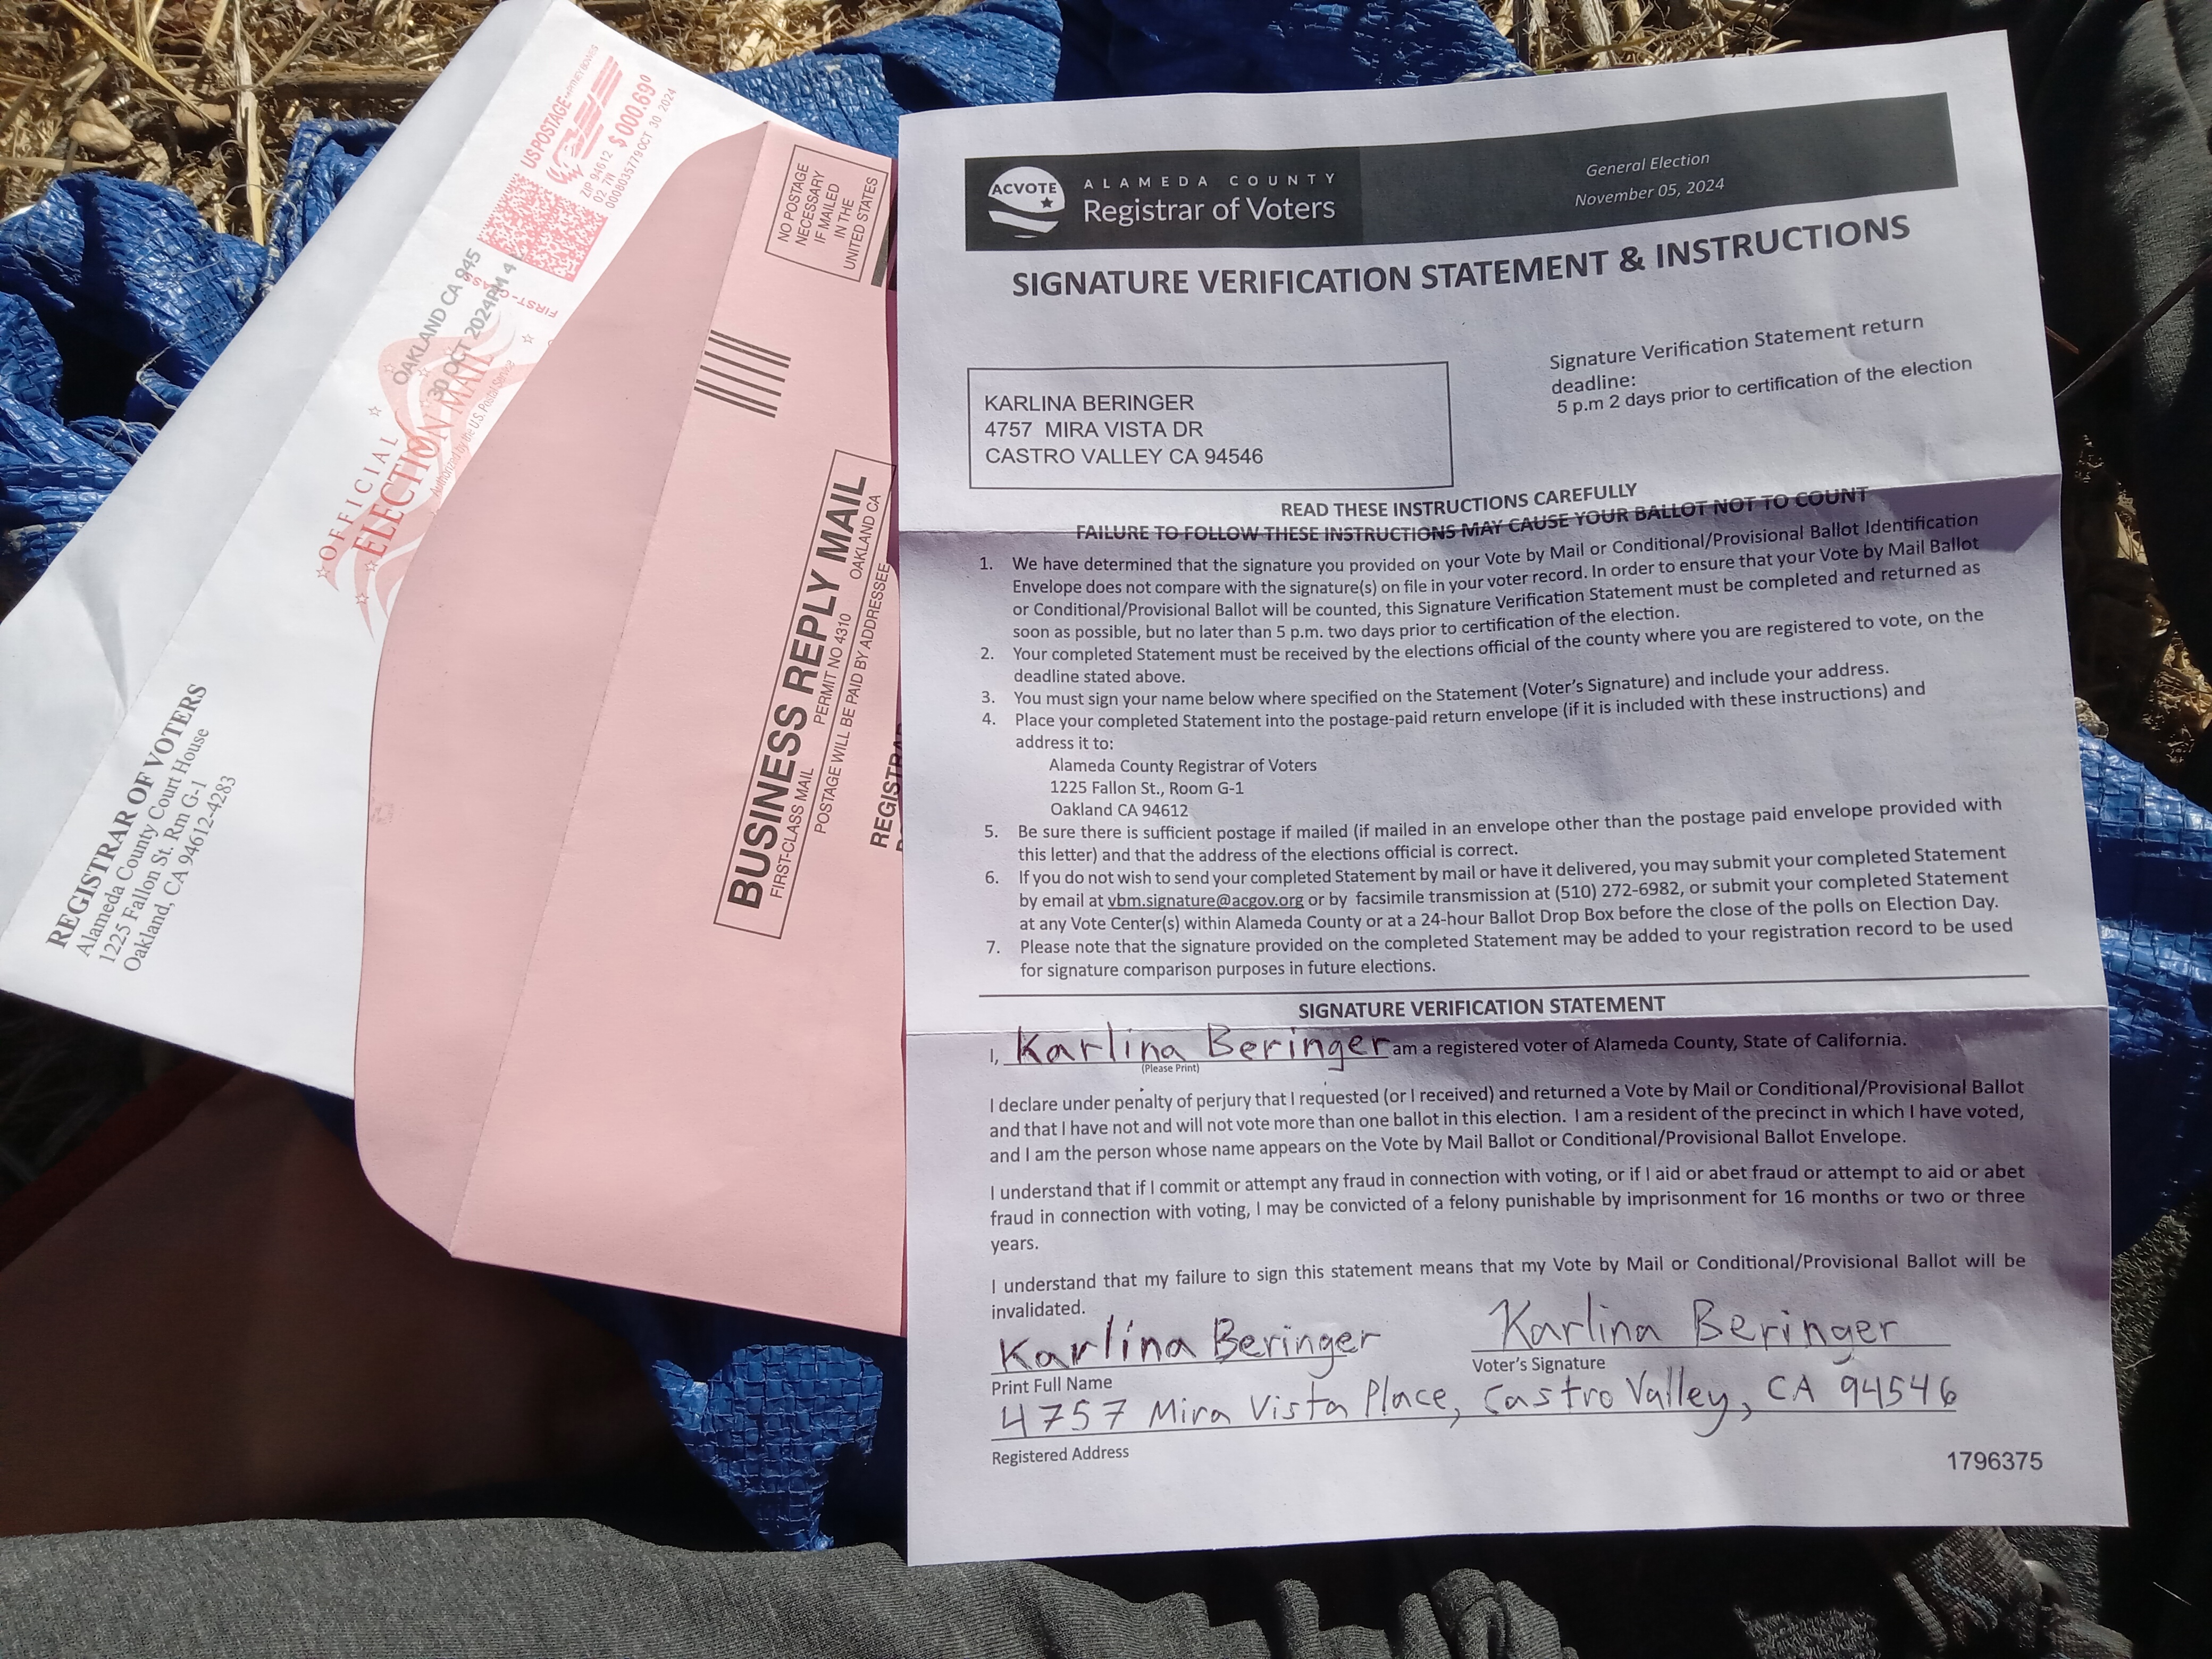 USPOSTAGE PITNEY BOWES
ZIP 94612 $ 000.69⁰
02 7W
0008035779 OCT 30 2024
FIRST-CLASS
OAKLAND CA 945
30 OCT 2024 PM 4
OFFICIAL
ELECTION MAIL
Authorized by the U.S. Postal Service
REGISTRAR OF VOTERS
Alameda County Court House
1225 Fallon St. Rm G-1
Oakland, CA 94612-4283
NO POSTAGE
NECESSARY
IF MAILED
IN THE
UNITED STATES
BUSINESS REPLY MAIL
FIRST-CLASS MAIL PERMIT NO 4310 OAKLAND CA
POSTAGE WILL BE PAID BY ADDRESSEE
ACVOTE
ALAMEDA COUNTY
Registrar of Voters
General Election
November 05, 2024
SIGNATURE VERIFICATION STATEMENT & INSTRUCTIONS
Signature Verification Statement return
deadline:
5 p.m 2 days prior to certification of the election
KARLINA BERINGER
4757 MIRA VISTA DR
CASTRO VALLEY CA 94546
READ THESE INSTRUCTIONS CAREFULLY
FAILURE TO FOLLOW THESE INSTRUCTIONS MAY CAUSE YOUR BALLOT NOT TO COUNT
1. We have determined that the signature you provided on your Vote by Mail or Conditional/Provisional Ballot Identification
Envelope does not compare with the signature(s) on file in your voter record. In order to ensure that your Vote by Mail Ballot
or Conditional/Provisional Ballot will be counted, this Signature Verification Statement must be completed and returned as
soon as possible, but no later than 5 p.m. two days prior to certification of the election.
2. Your completed Statement must be received by the elections official of the county where you are registered to vote, on the
deadline stated above.
3. You must sign your name below where specified on the Statement (Voter's Signature) and include your address.
4. Place your completed Statement into the postage-paid return envelope (if it is included with these instructions) and
address it to:
Alameda County Registrar of Voters
1225 Fallon St., Room G-1
Oakland CA 94612
5. Be sure there is sufficient postage if mailed (if mailed in an envelope other than the postage paid envelope provided with
this letter) and that the address of the elections official is correct.
6. If you do not wish to send your completed Statement by mail or have it delivered, you may submit your completed Statement
by email at vbm.signature@acgov.org or by facsimile transmission at (510) 272-6982, or submit your completed Statement
at any Vote Center(s) within Alameda County or at a 24-hour Ballot Drop Box before the close of the polls on Election Day.
7. Please note that the signature provided on the completed Statement may be added to your registration record to be used
for signature comparison purposes in future elections.
SIGNATURE VERIFICATION STATEMENT
I, Karlina Beringer am a registered voter of Alameda County, State of California.
(Please Print)
I declare under penalty of perjury that I requested (or I received) and returned a Vote by Mail or Conditional/Provisional Ballot
and that I have not and will not vote more than one ballot in this election. I am a resident of the precinct in which I have voted,
and I am the person whose name appears on the Vote by Mail Ballot or Conditional/Provisional Ballot Envelope.
I understand that if I commit or attempt any fraud in connection with voting, or if I aid or abet fraud or attempt to aid or abet
fraud in connection with voting, I may be convicted of a felony punishable by imprisonment for 16 months or two or three
years.
I understand that my failure to sign this statement means that my Vote by Mail or Conditional/Provisional Ballot will be
invalidated.
Karlina Beringer Karlina Beringer
Print Full Name Voter's Signature
4757 Mira Vista Place, Castro Valley, CA 94546
Registered Address
1796375